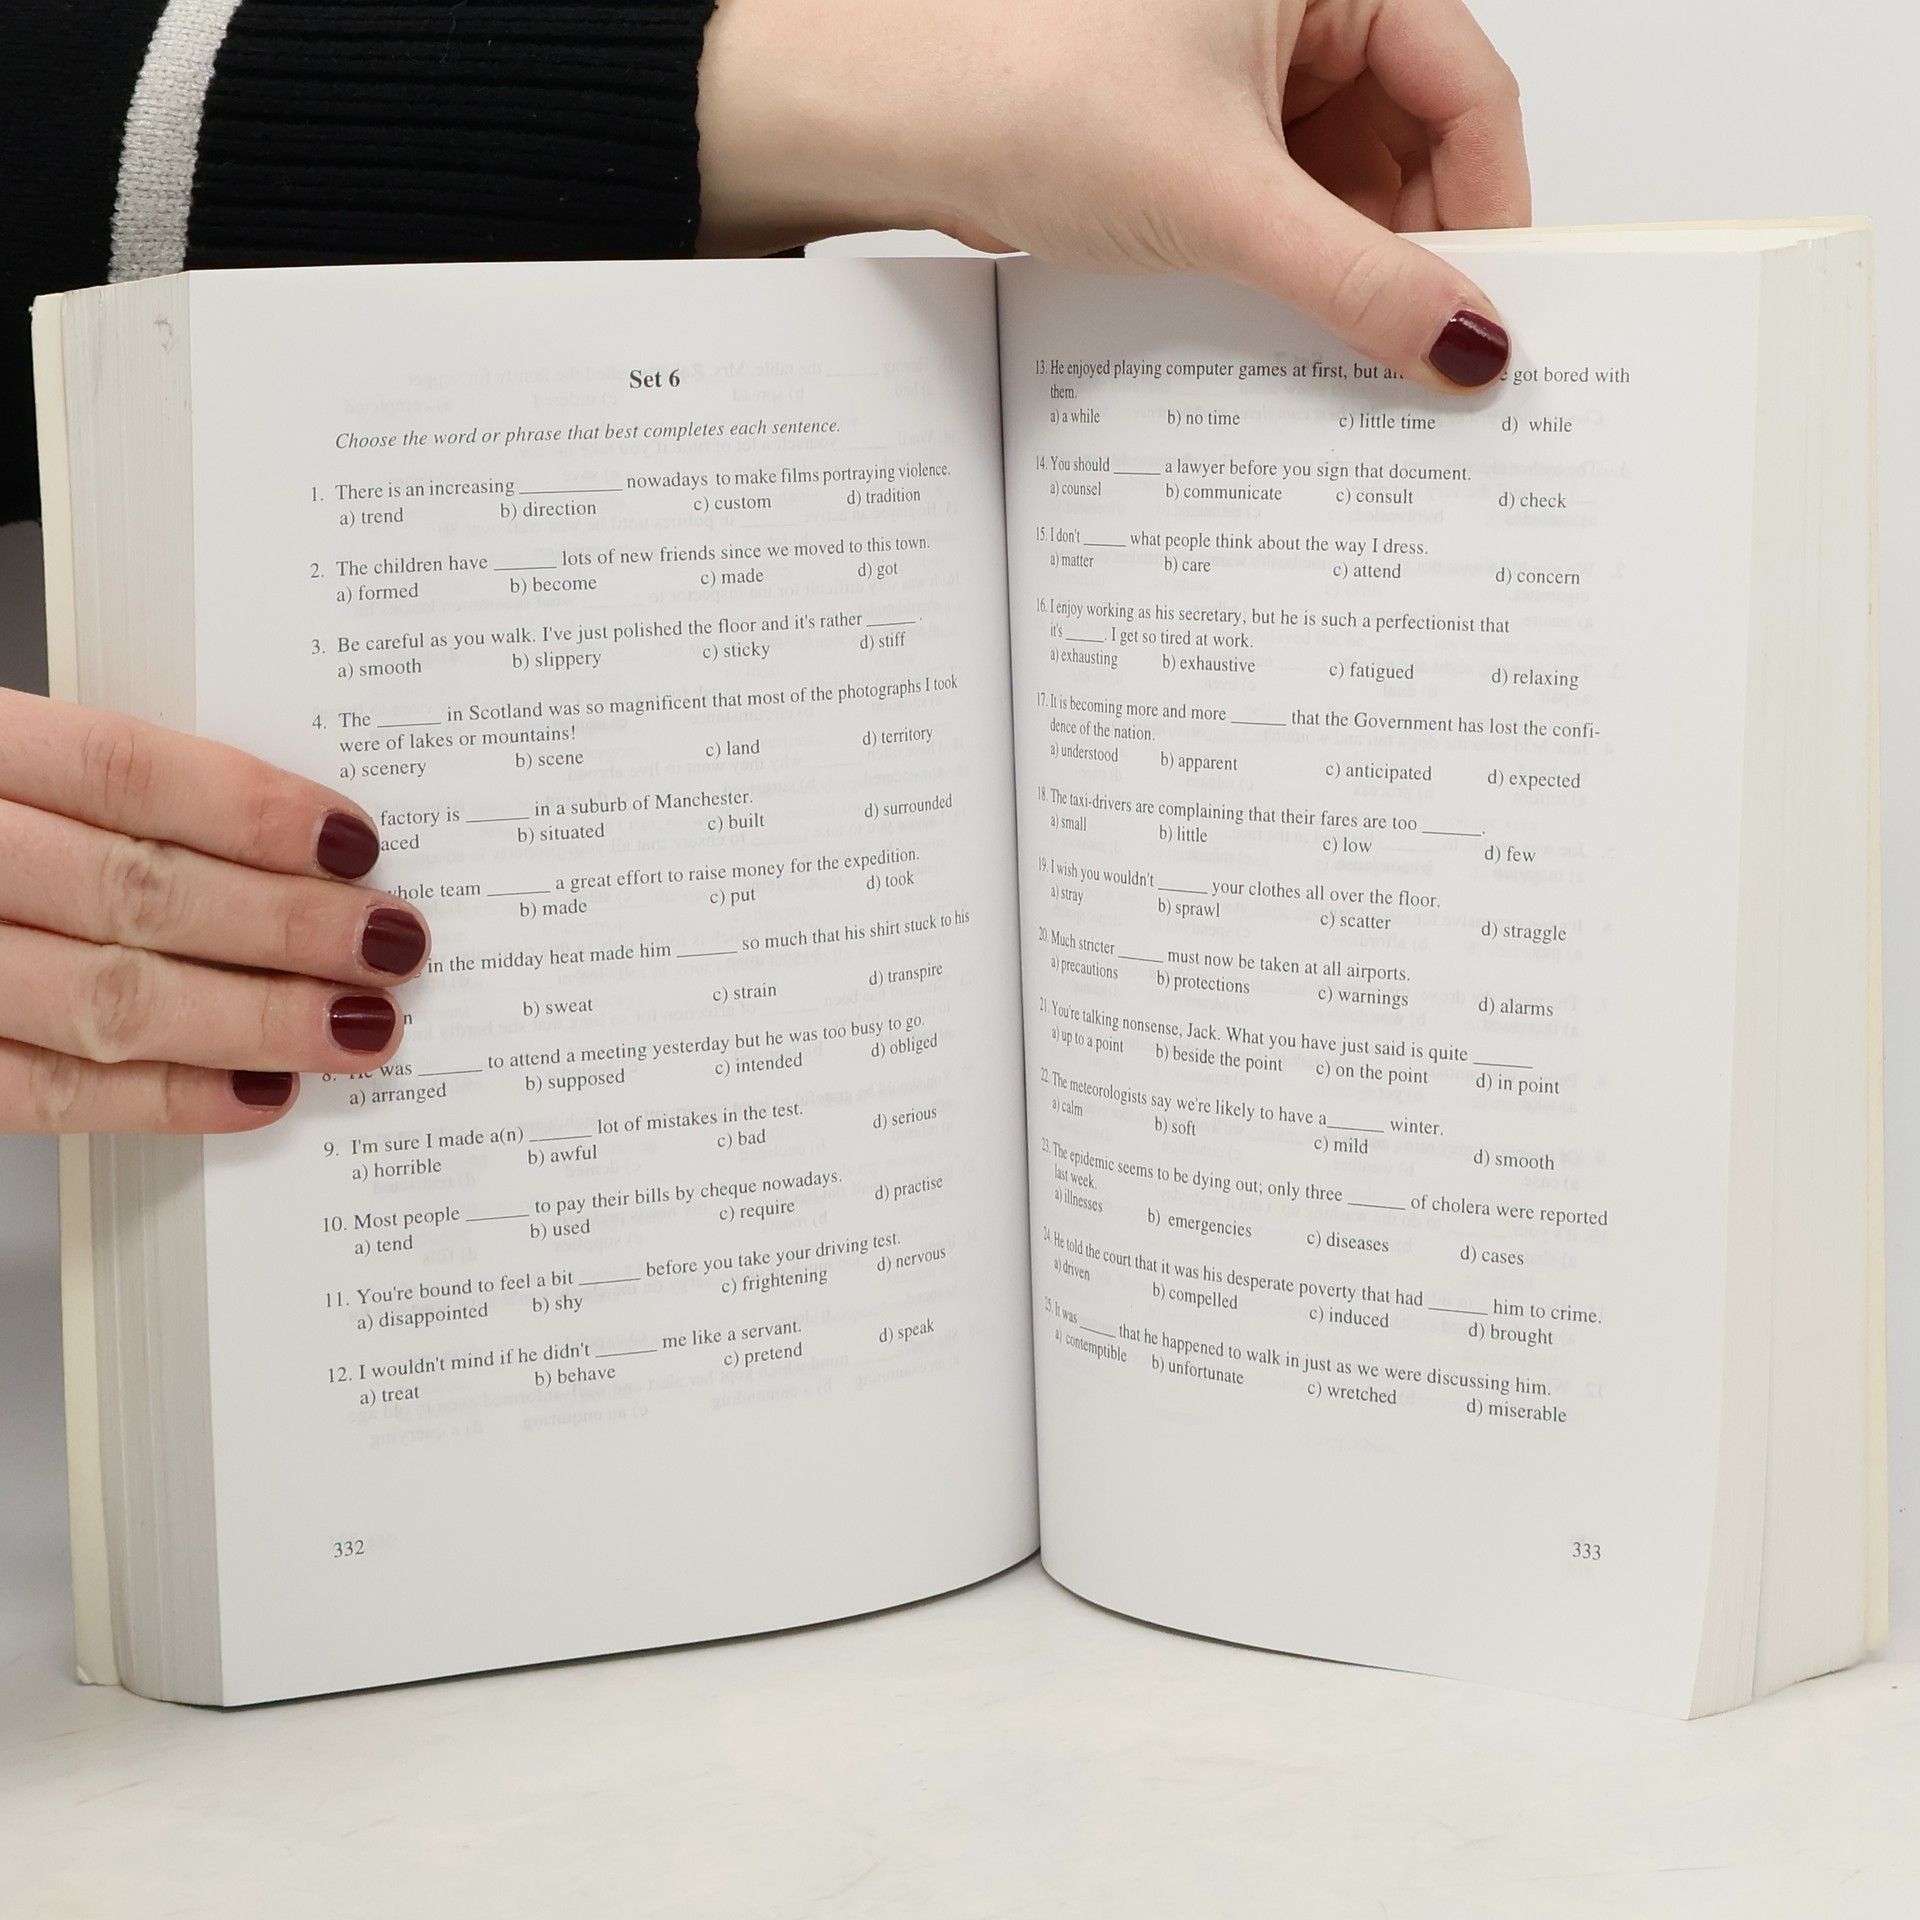 Set 6
Choose the word or phrase that best completes each sentence.
1. There is an increasing __________ nowadays to make films portraying violence.
a) trend b) direction c) custom d) tradition
2. The children have ______ lots of new friends since we moved to this town.
a) formed b) become c) made d) got
3. Be careful as you walk. I've just polished the floor and it's rather _____.
a) smooth b) slippery c) sticky d) stiff
4. The ______ in Scotland was so magnificent that most of the photographs I took
were of lakes or mountains!
a) scenery b) scene c) land d) territory
factory is ______ in a suburb of Manchester.
b) situated c) built d) surrounded
team ______ a great effort to raise money for the expedition.
b) made c) put d) took
in the midday heat made him ______ so much that his shirt stuck to his
b) sweat c) strain d) transpire
8. He was ______ to attend a meeting yesterday but he was too busy to go.
a) arranged b) supposed c) intended d) obliged
9. I'm sure I made a(n) ______ lot of mistakes in the test.
a) horrible b) awful c) bad d) serious
10. Most people ______ to pay their bills by cheque nowadays.
a) tend b) used c) require d) practise
11. You're bound to feel a bit ______ before you take your driving test.
a) disappointed b) shy c) frightening d) nervous
12. I wouldn't mind if he didn't ______ me like a servant.
a) treat b) behave c) pretend d) speak
332
13. He enjoyed playing computer games at first, but got bored with
them.
a) a while b) no time c) little time d) while
14. You should _____ a lawyer before you sign that document.
a) counsel b) communicate c) consult d) check
15. I don't _____ what people think about the way I dress.
a) matter b) care c) attend d) concern
16. I enjoy working as his secretary, but he is such a perfectionist that
it's _____. I get so tired at work.
a) exhausting b) exhaustive c) fatigued d) relaxing
17. It is becoming more and more ______ that the Government has lost the confi-
dence of the nation.
a) understood b) apparent c) anticipated d) expected
18. The taxi-drivers are complaining that their fares are too ______.
a) small b) little c) low d) few
19. I wish you wouldn't _____ your clothes all over the floor.
a) stray b) sprawl c) scatter d) straggle
20. Much stricter _____ must now be taken at all airports.
a) precautions b) protections c) warnings d) alarms
21. You're talking nonsense, Jack. What you have just said is quite ______
a) up to a point b) beside the point c) on the point d) in point
22. The meteorologists say we're likely to have a______ winter.
a) calm b) soft c) mild d) smooth
23. The epidemic seems to be dying out; only three ______ of cholera were reported
last week.
a) illnesses b) emergencies c) diseases d) cases
24. He told the court that it was his desperate poverty that had ______ him to crime.
a) driven b) compelled c) induced d) brought
25. It was _____ that he happened to walk in just as we were discussing him.
a) contemptible b) unfortunate c) wretched d) miserable
333